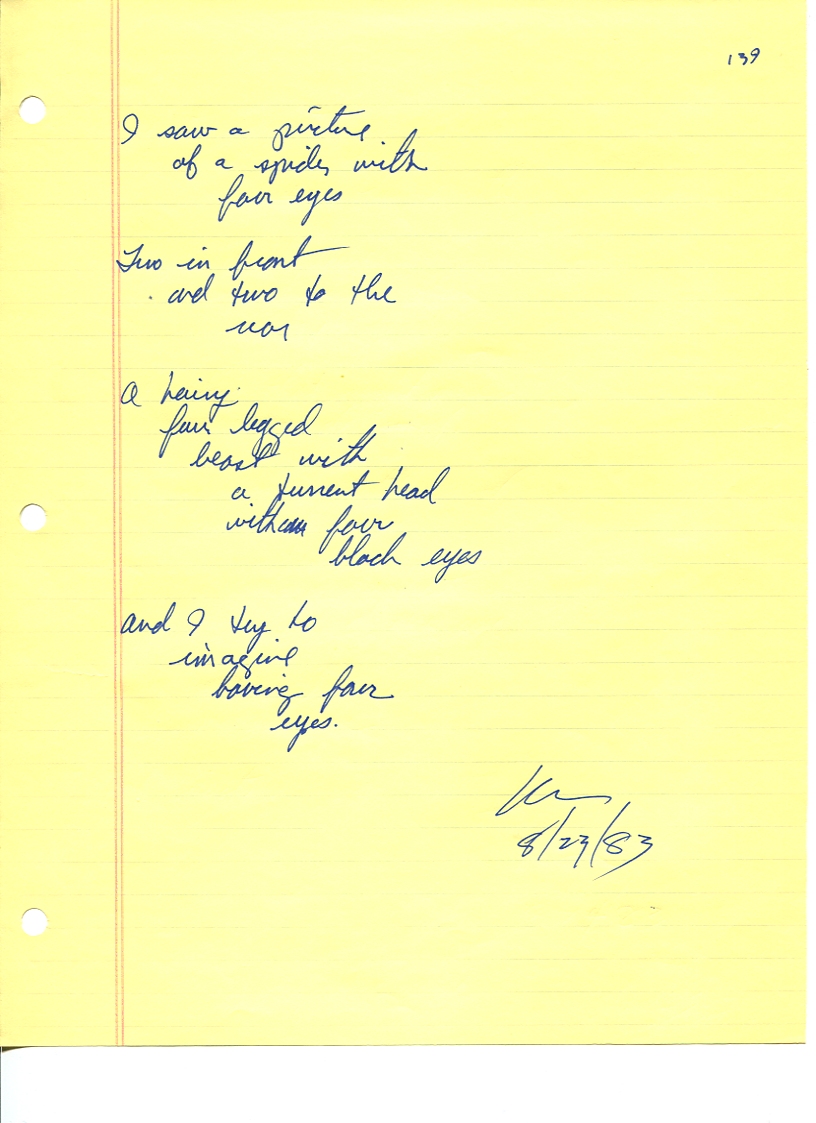 139
I saw a picture
of a spider with
four eyes
Two in front
and two to the
rear
A hairy
four legged
beast with
a turrent head
with four
black eyes
and I try to
imagine
having four
eyes.
8/23/83